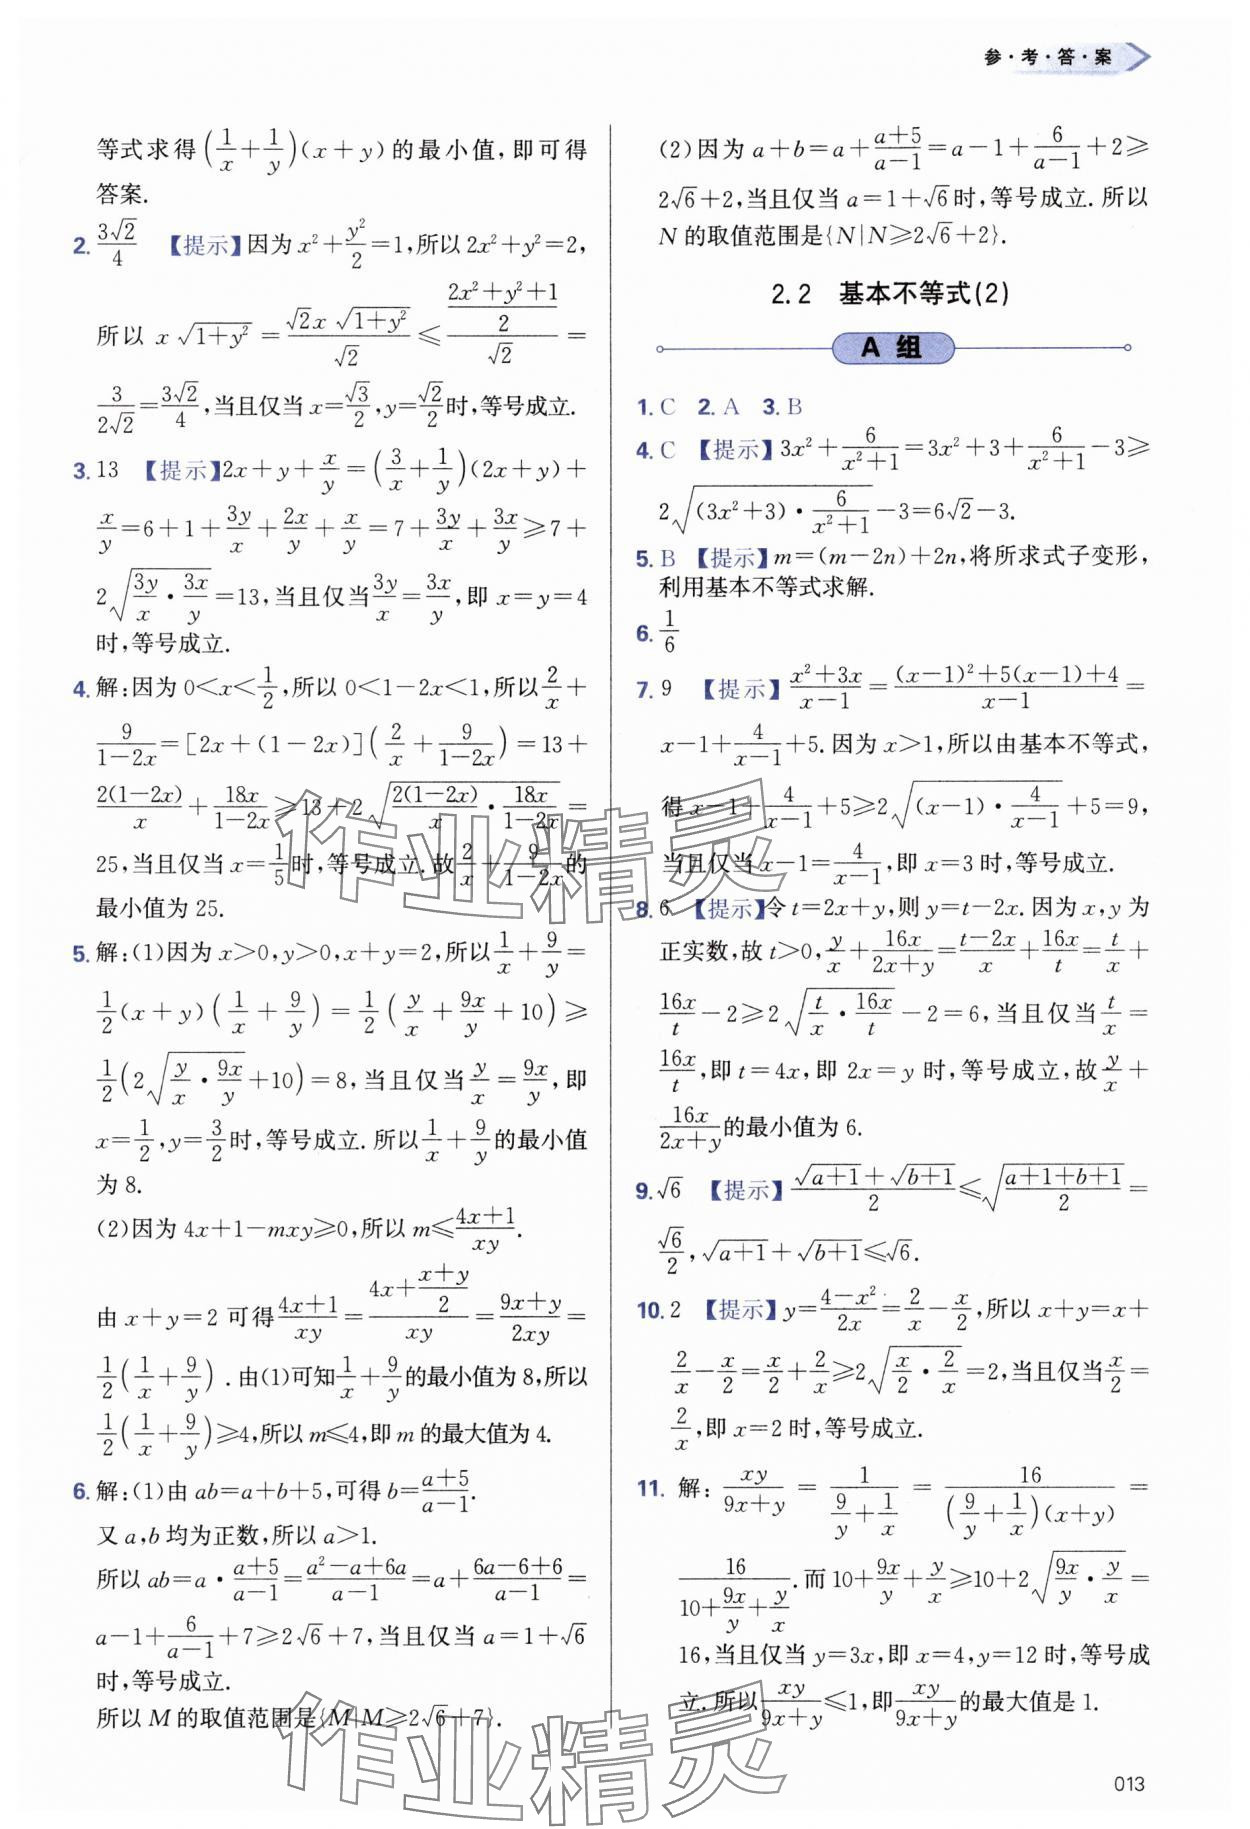 参·考·答·案
等式求得(1/x+1/y)(x+y)的最小值,即可得
答案.
2. 3√2/4 【提示】因为x²+y²/2=1,所以2x²+y²=2,
所以 x√(1+y²)=√2x√(1+y²)/√2≤((2x²+y²+1)/2)/√2=
3/(2√2)=3√2/4,当且仅当x=√3/2,y=√2/2时,等号成立.
3. 13 【提示】2x+y+x/y=(3/x+1/y)(2x+y)+
x/y=6+1+3y/x+2x/y+x/y=7+3y/x+3x/y≥7+
2√(3y/x·3x/y)=13,当且仅当3y/x=3x/y,即x=y=4
时,等号成立.
4. 解:因为0<x<1/2,所以0<1-2x<1,所以2/x+
9/(1-2x)=[2x+(1-2x)](2/x+9/(1-2x))=13+
2(1-2x)/x+18x/(1-2x)≥13+2√(2(1-2x)/x·18x/(1-2x))=
25,当且仅当x=1/5时,等号成立.故2/x+9/(1-2x)的
最小值为25.
5. 解:(1)因为x>0,y>0,x+y=2,所以1/x+9/y=
1/2(x+y)(1/x+9/y)=1/2(y/x+9x/y+10)≥
1/2(2√(y/x·9x/y)+10)=8,当且仅当y/x=9x/y,即
x=1/2,y=3/2时,等号成立.所以1/x+9/y的最小值
为8.
(2)因为4x+1-mxy≥0,所以m≤(4x+1)/xy.
由x+y=2可得(4x+1)/xy=(4x+(x+y)/2)/xy=(9x+y)/2xy=
1/2(1/x+9/y).由(1)可知1/x+9/y的最小值为8,所以
1/2(1/x+9/y)≥4,所以m≤4,即m的最大值为4.
6. 解:(1)由ab=a+b+5,可得b=(a+5)/(a-1).
又a,b均为正数,所以a>1.
所以ab=a·(a+5)/(a-1)=(a²-a+6a)/(a-1)=a+(6a-6+6)/(a-1)=
a-1+6/(a-1)+7≥2√6+7,当且仅当a=1+√6
时,等号成立.
所以M的取值范围是{M|M≥2√6+7}.
(2)因为a+b=a+(a+5)/(a-1)=a-1+6/(a-1)+2≥
2√6+2,当且仅当a=1+√6时,等号成立.所以
N的取值范围是{N|N≥2√6+2}.
2.2 基本不等式(2)
A 组
1. C 2. A 3. B
4. C 【提示】3x²+6/(x²+1)=3x²+3+6/(x²+1)-3≥
2√((3x²+3)·6/(x²+1))-3=6√2-3.
5. B 【提示】m=(m-2n)+2n,将所求式子变形,
利用基本不等式求解.
6. 1/6
7. 9 【提示】(x²+3x)/(x-1)=((x-1)²+5(x-1)+4)/(x-1)=
x-1+4/(x-1)+5.因为x>1,所以由基本不等式,
得x-1+4/(x-1)+5≥2√((x-1)·4/(x-1))+5=9,
当且仅当x-1=4/(x-1),即x=3时,等号成立.
8. 6 【提示】令t=2x+y,则y=t-2x.因为x,y为
正实数,故t>0,y/x+16x/(2x+y)=(t-2x)/x+16x/t=t/x+
16x/t-2≥2√(t/x·16x/t)-2=6,当且仅当t/x=
16x/t,即t=4x,即2x=y时,等号成立,故y/x+
16x/(2x+y)的最小值为6.
9. √6 【提示】(√(a+1)+√(b+1))/2≤√((a+1+b+1)/2)=
√6/2,√(a+1)+√(b+1)≤√6.
10. 2 【提示】y=(4-x²)/2x=2/x-x/2,所以x+y=x+
2/x-x/2=x/2+2/x≥2√(x/2·2/x)=2,当且仅当x/2=
2/x,即x=2时,等号成立.
11. 解:xy/(9x+y)=1/(9/y+1/x)=16/((9/y+1/x)(x+y))=
16/(10+9x/y+y/x).而10+9x/y+y/x≥10+2√(9x/y·y/x)=
16,当且仅当y=3x,即x=4,y=12时,等号成
立.所以xy/(9x+y)≤1,即xy/(9x+y)的最大值是1.
作业精灵
作业精灵
013